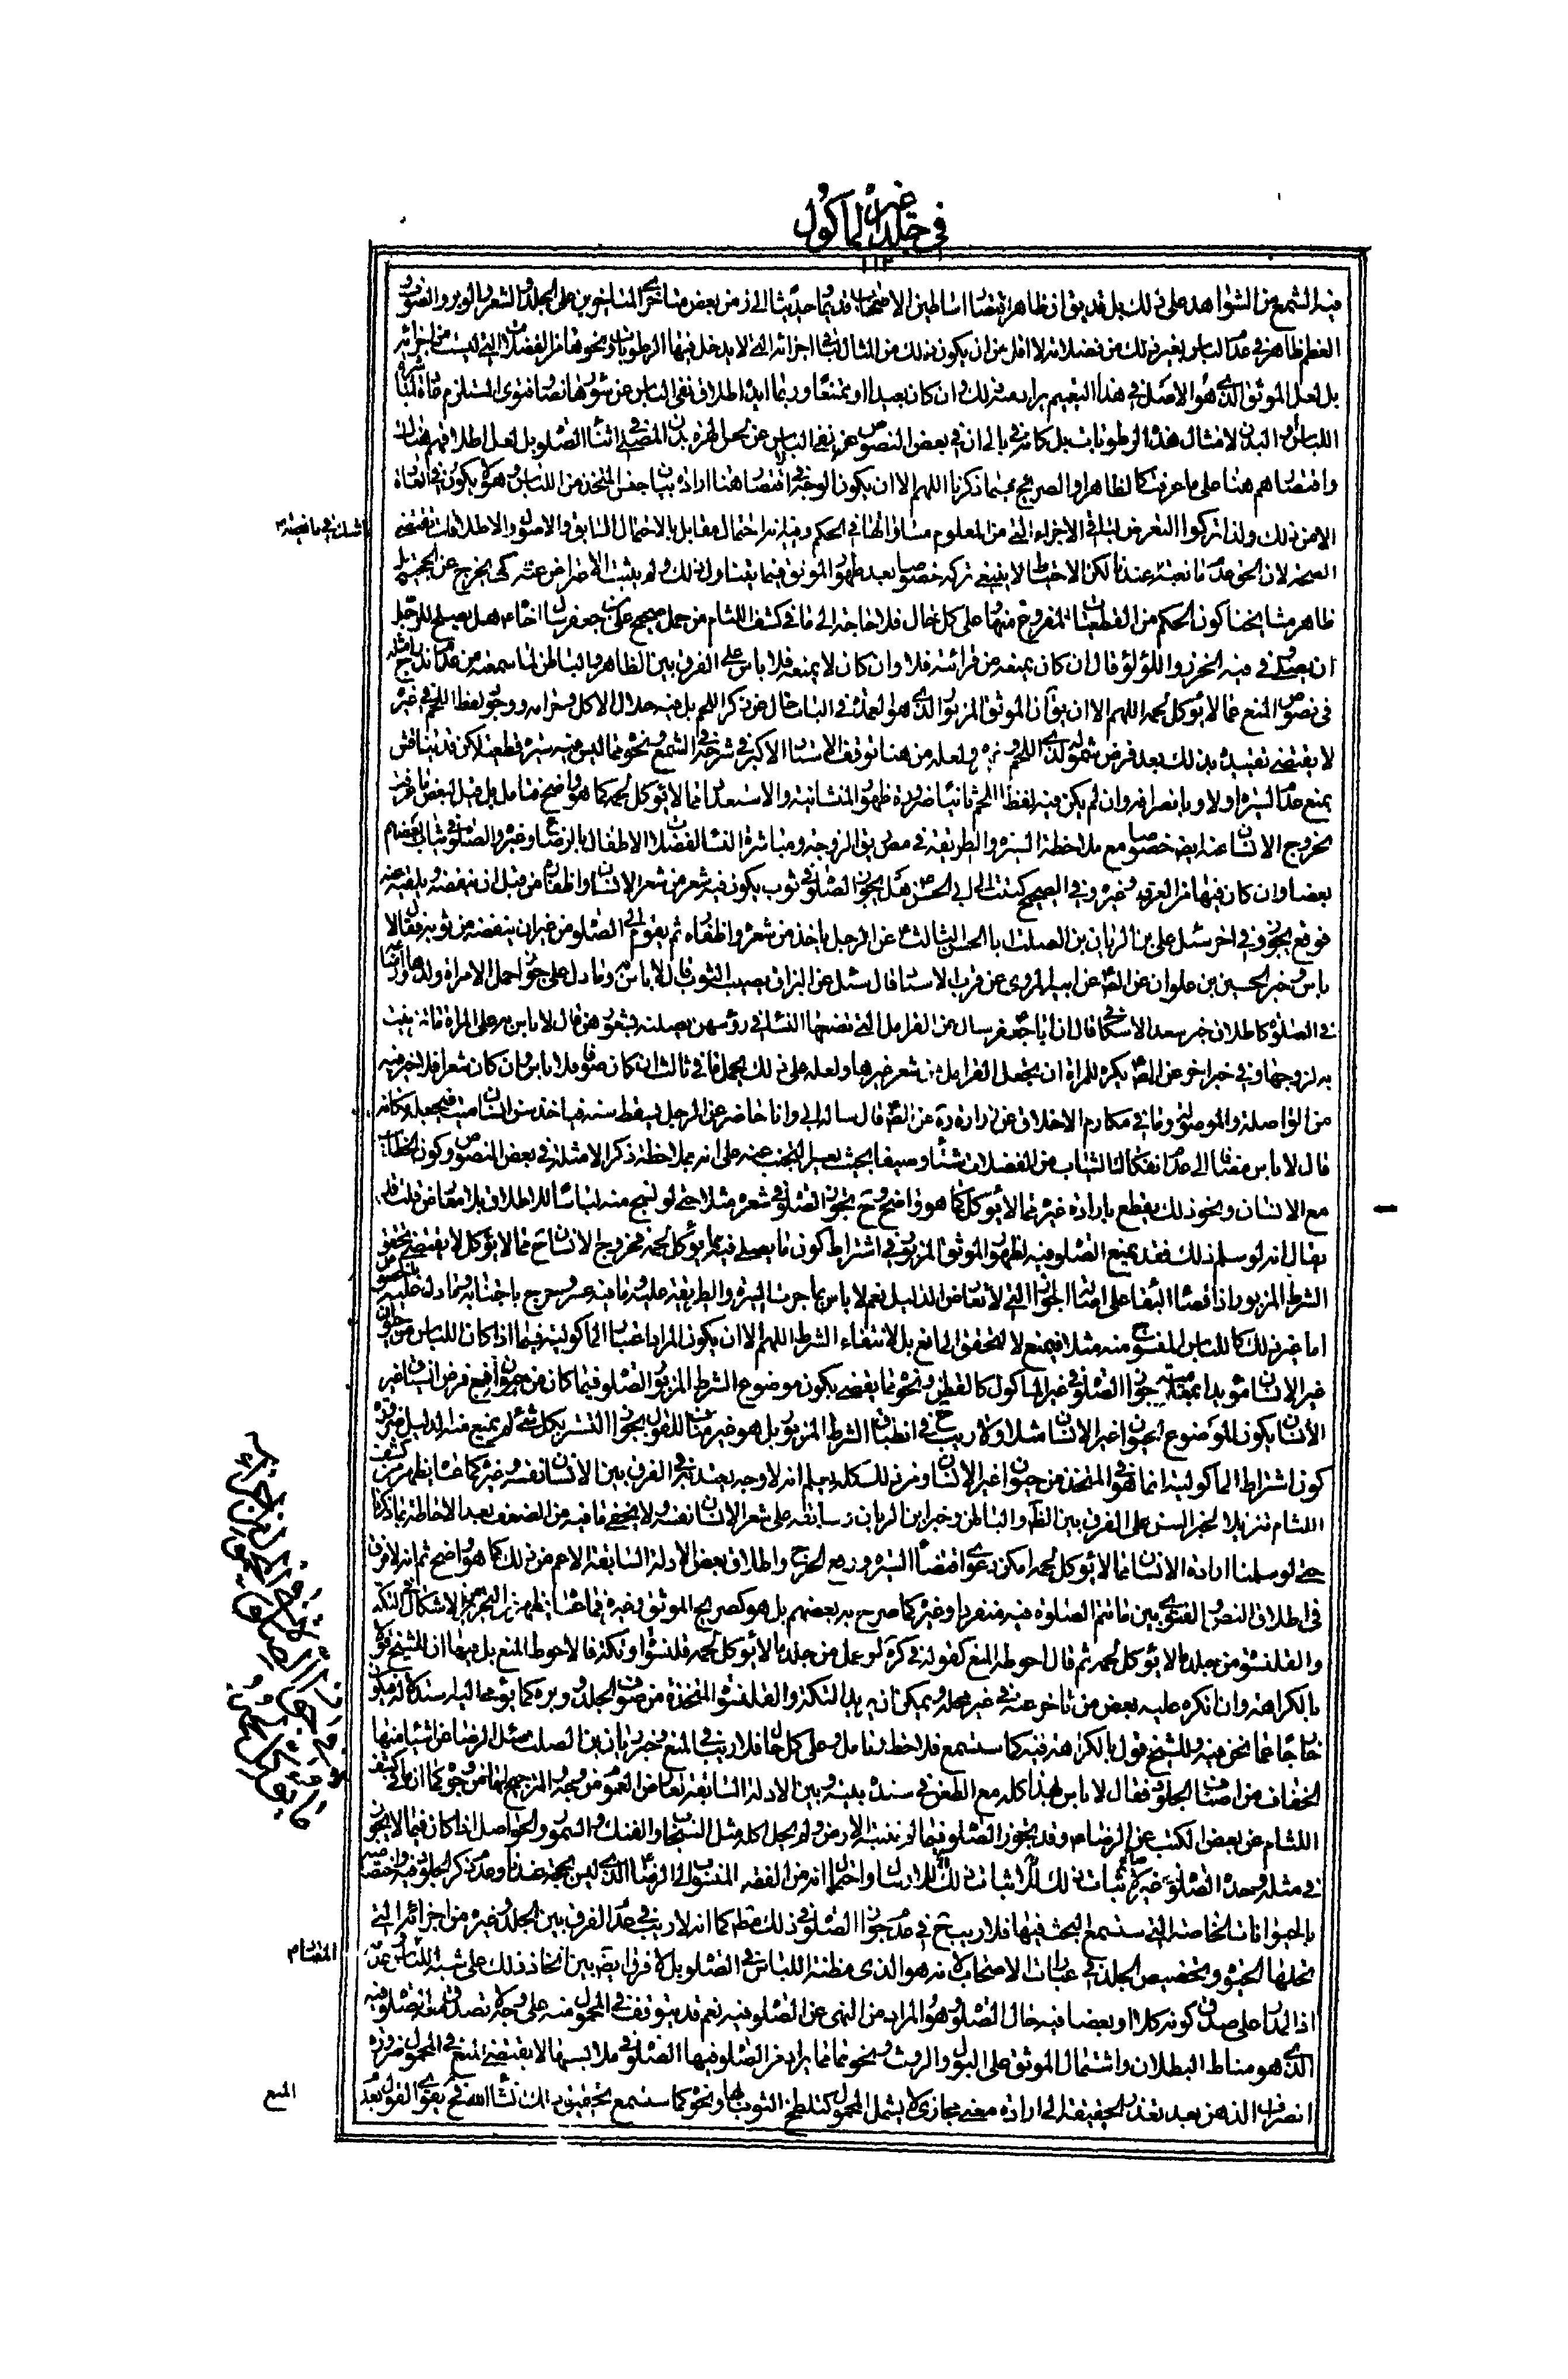 في جلد غير المأكول
١١٢
فيه الشمع من الشواهد على ذلك بل قد يق ان ظاهر اقتصار اساطين الاصحاب قديما وحديثا الى زمن بعض متاخرى المتاخرين على الجلد والشعر والوبر والصوف
العظم ظاهر في عدم الباس بغير ذلك من فضلاته لا اقل من ان يكون ذلك من المثال لباقى اجزائه التى لا يدخل فيها الرطوبات ونحوها من الفضلات التى ليست من اجزائه
بل لعل الموثق الذى هو الاصل في هذا التعميم يراد منه ذلك وان كان بعيدا او ممتنعا وربما ايد اطلاق نفى الباس عن سؤرها نصا وفتوى المستلزم
اللباس والبدن لامثال هذه الرطوبات بل كا في بالى ان في بعض النصوص نفى الباس عن لحس الهرة بدن المصلى في اثناء الصلوة بل لعل اطلاقهم هناك
واقتصارهم هنا على ما عرفت كالظاهر او الصريح فيما ذكرنا اللهم الا ان يكون الوجه في اقتصارهنا ارادة بيان جنس المتخذ من اللباس وهو لا يكون في الغالب
الا من ذلك ولذا تركوا التعرض لباقى الاجزاء التى من المعلوم مساواتها في الحكم وفيه انه احتمال مقابل بالاحتمال السابق والاصول والاطلاقات تقتضى
الصحة لان الحق عدم مانعيته عندنا لكن الاحتياط لا ينبغى تركه خصوصا بعد ظهور الموثق فيما يتناول ذلك ولم يثبت الاعراض عنه كى يخرج عن الحجية بل
ظاهر مشايخنا كون الحكم من القطعيات المفروغ منها على كل حال فلا حاجة الى ما في كشف اللثام من حمل صحيح على بن جعفر سال اخاه هل يصلح للرجل
ان يصلى وفي فيه الخرز واللؤلؤ قال ان كان يمنعه من قرائته فلا وان كان لا يمنعه فلا باس على الفرق بين الظاهر والباطن لما سمعته من عدم اندراج مثله
في نصوص المنع مما لا يؤكل لحمه اللهم الا ان يق ان الموثق المزبور الذى هو العمدة في الباب خال عن ذكر اللحم بل فيه حلال الاكل وحرامه ووجود لفظ اللحم في غيره
لا يقتضى تقييده بذلك بعد فرض شموله لذى اللحم وغيره ولعله من هنا توقف الاستاد الاكبر في شرحه في الشمع ونحوه مما ليس فيه سيرة قطعية لكن قد يناقش
بمنع عدم السيرة اولا وبانصرافه وان لم يكن فيه لفظ اللحم ثانيا ضرورة ظهور المنشائية والاستعداد مما لا يؤكل لحمه كما هو واضح فتامل بل قيل لبعض ما عرفت
بخروج الانسان عنه ايض خصوصا مع ملاحظة السيرة والطريقة في مص ريق الزوجة ومباشرة النساء لفضلات الاطفال بالرضاع وغيره والصلوة في ثياب بعضهم
بعضا وان كان فيها من العرق وغيره وفي الصحيح كتبت الى ابى الحسن ع هل يجوز الصلوة في ثوب يكون فيه شعر من شعر الانسان واظفاره من قبل ان ينفضه ويلقيه عنه
فوقع يجوز وفي اخر سئل على بن الريان بن الصلت ابا الحسن الثالث ع عن الرجل ياخذ من شعره واظفاره ثم يقوم الى الصلوة من غير ان ينفضه من ثوبه فقال لا
باس وخبر الحسين بن علوان عن الص ع عن ابيه المروى عن قرب الاسناد قال سئل عن البزاق يصيب الثوب قال لا باس به وما دل على جواز حمل الامراة ولدها وارضاعه
في الصلوة كاطلاق خبر سعد الاسكاف قال ان ابا جعفر ع سال عن القرامل التى تضعها النساء في رؤسهن يصلنه بشعورهن قال لا باس به على المراة ما تزينت
به لزوجها وفي خبر اخر عن الص ع يكره للمراة ان تجعل القرامل من شعر غيرها ولعله على ذلك يحمل ما في ثالث ان كان صوفا فلا باس وان كان شعرا فلا خير فيه
من الواصلة والموصولة وما في مكارم الاخلاق عن زرارة عن الص ع قال ساله ابى وانا حاضر عن الرجل يسقط سنه فياخذ سن انسان ميت فيجعله مكانه
قال لا باس مضافا الى عدم انفكاك الثياب من الفضلات شتاء وصيفا بحيث يعسر التجنب عنه على انه بملاحظة ذكر الامثلة في بعض النصوص وكون الخطاب
مع الانسان ونحو ذلك يقطع بارادة غيره مما لا يؤكل كما هو واضح وح تجوز الصلوة في شعره مثلا حتى لو نسج منه لباسا للاطلاق بلا معارض قلت قد
يقال انه لو سلم ذلك فقد يمنع الصلوة فيه لظهور الموثق المزبور في اشتراط كون ما يصلى فيه مما يؤكل لحمه فخروج الانسان ح مما لا يؤكل لا يقتضى تحقق
الشرط المزبور اذ اقصاه البقاء على اصالة الجواز التى لا تعارض الدليل نعم لا باس بما جرت السيرة والطريقة عليه وما فيه عسر وحرج باجتنابه وما دل عليه
اما غير ذلك كاللباس المنسوج منه مثلا فيمنع لا لتحقق المانع بل لانتفاء الشرط اللهم الا ان يكون المراد اعتبار الماكولية فيما اذا كان اللباس من حيوان
غير الانسان مؤيدا بمعلومية جواز الصلوة في غير الماكول كالقطن ونحوه مما يقضى بكون موضوع الشرط المزبور الصلوة فيما كان من حيوان
الانسان يكون الموضوع الحيوان غير الانسان مثلا ولا ريب في انطباق الشرط المزبور بل هو غير مناف للقول بجواز التستر بكل شئ لم يمنع منه الدليل ضرورة
كون اشتراط الماكولية انما هو في المتخذ من حيوان غير الانسان ومن ذلك كله يعلم انه لا وجه يعتد به في الفرق بين الانسان نفسه وغيره كما عساه يظهر من كشف
اللثام تنزيلا لخبر السن على الفرق بين الظاهر والباطن وخبر ابن الريان وسابقه على شعر الانسان نفسه ولا يخفى ما فيه من الضعف بعد الاحاطة بما ذكرنا
حتى لو سلمنا ارادة الانسان مما لا يؤكل لحمه امكن دعوى اقتضاء السيرة ورفع الحرج واطلاق بعض الادلة السابقة الاعم من ذلك كما هو واضح ثم انه لا فرق
في اطلاق النص والفتوى بين ما تتم الصلوة فيه منفردا وغيره كما صرح به بعضهم بل هو كصريح الموثق وغيره فما عساه يظهر من التحرير من الاشكال في التكة
والقلنسوة من جلد ما لا يؤكل لحمه ثم قال احوطه المنع كقوله في كره لو عمل من جلد ما لا يؤكل لحمه قلنسوة او تكة فالاحوط المنع بل فيها ان للشيخ قولا
بالكراهة وان انكره عليه بعض من تاخر عنه في غير محله ويمكن ان يريد التكة والقلنسوة المتخذة من صوف الجلد ووبره كما يؤمى اليه استدلاله فيكون
خارجا عما نحن فيه وللشيخ قول بالكراهة فيه كما ستسمع فلاحظ وتامل وعلى كل حال فلا ريب في المنع وخبر ريان بن الصلت سئل الرضا ع عن اشياء منها
الخفاف من اصناف الجلود فقال لا باس بهذا كله مع الطعن في سنده بينه وبين الادلة السابقة تعارض العموم من وجه والترجيح لها من وجوه كما ان ما في كشف
اللثام عن بعض الكتب عن الرضا ع وقد يجوز الصلوة فيما لم تنبته الارض ولم يحل اكله مثل السنجاب والفنك والسمور والحواصل اذا كان فيما لا يجوز
في مثله وحده الصلوة غير صالح لاثبات ذلك للارسال واحتمال انه من الفقه المنسوب الى الرضا ع الذى ليس بحجة عندنا وعدم ذكر الجلود فيه واختصاصه
بالحيوانات الخاصة التى ستسمع البحث فيها فلا ريب ح في عدم جواز الصلوة في ذلك مط كما انه لا ريب في عدم الفرق بين الجلد وغيره من اجزائه التى
تحلها الحيوة وتخصيص الجلد في عبارات الاصحاب لانه هو الذى مظنة اللباس في الصلوة بل لا فرق ايض بين اتخاذ ذلك على هيئة اللباس وعدمه
اذ المدار على صدق كونه كلا او بعضا فيه حال الصلوة وهو المراد من النهى عن الصلوة فيه نعم قد يتوقف في المحمول منه على وجه لا تصدق معه الصلوة فيه
الذى هو مناط البطلان واشتمال الموثق على البول والروث ونحوهما مما يراد من الصلوة فيها الصلوة في ملابسها لا يقتضى المنع في المحمول ضرورة
انصراف الذهن بعد تعذر الحقيقة الى ارادة معنى مجازى لا يشمل المحمول كتلطخ الثوب بها ونحوه كما ستسمع تحقيق ذلك انشاء الله فح يقوى القول بعدم
المنع